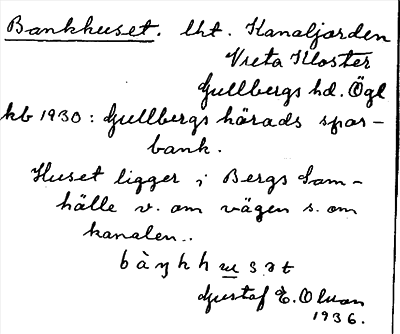 Bankhuset. lht. Kanaljorden
Vreta Kloster
Gullbergs hd. Ögl
kb 1930: Gullbergs härads spar-
bank.
Huset ligger i Bergs Sam-
hälle v. om vägen s. om
kanalen..
bàŋkhusət
Gustaf E. Olsson
1936.